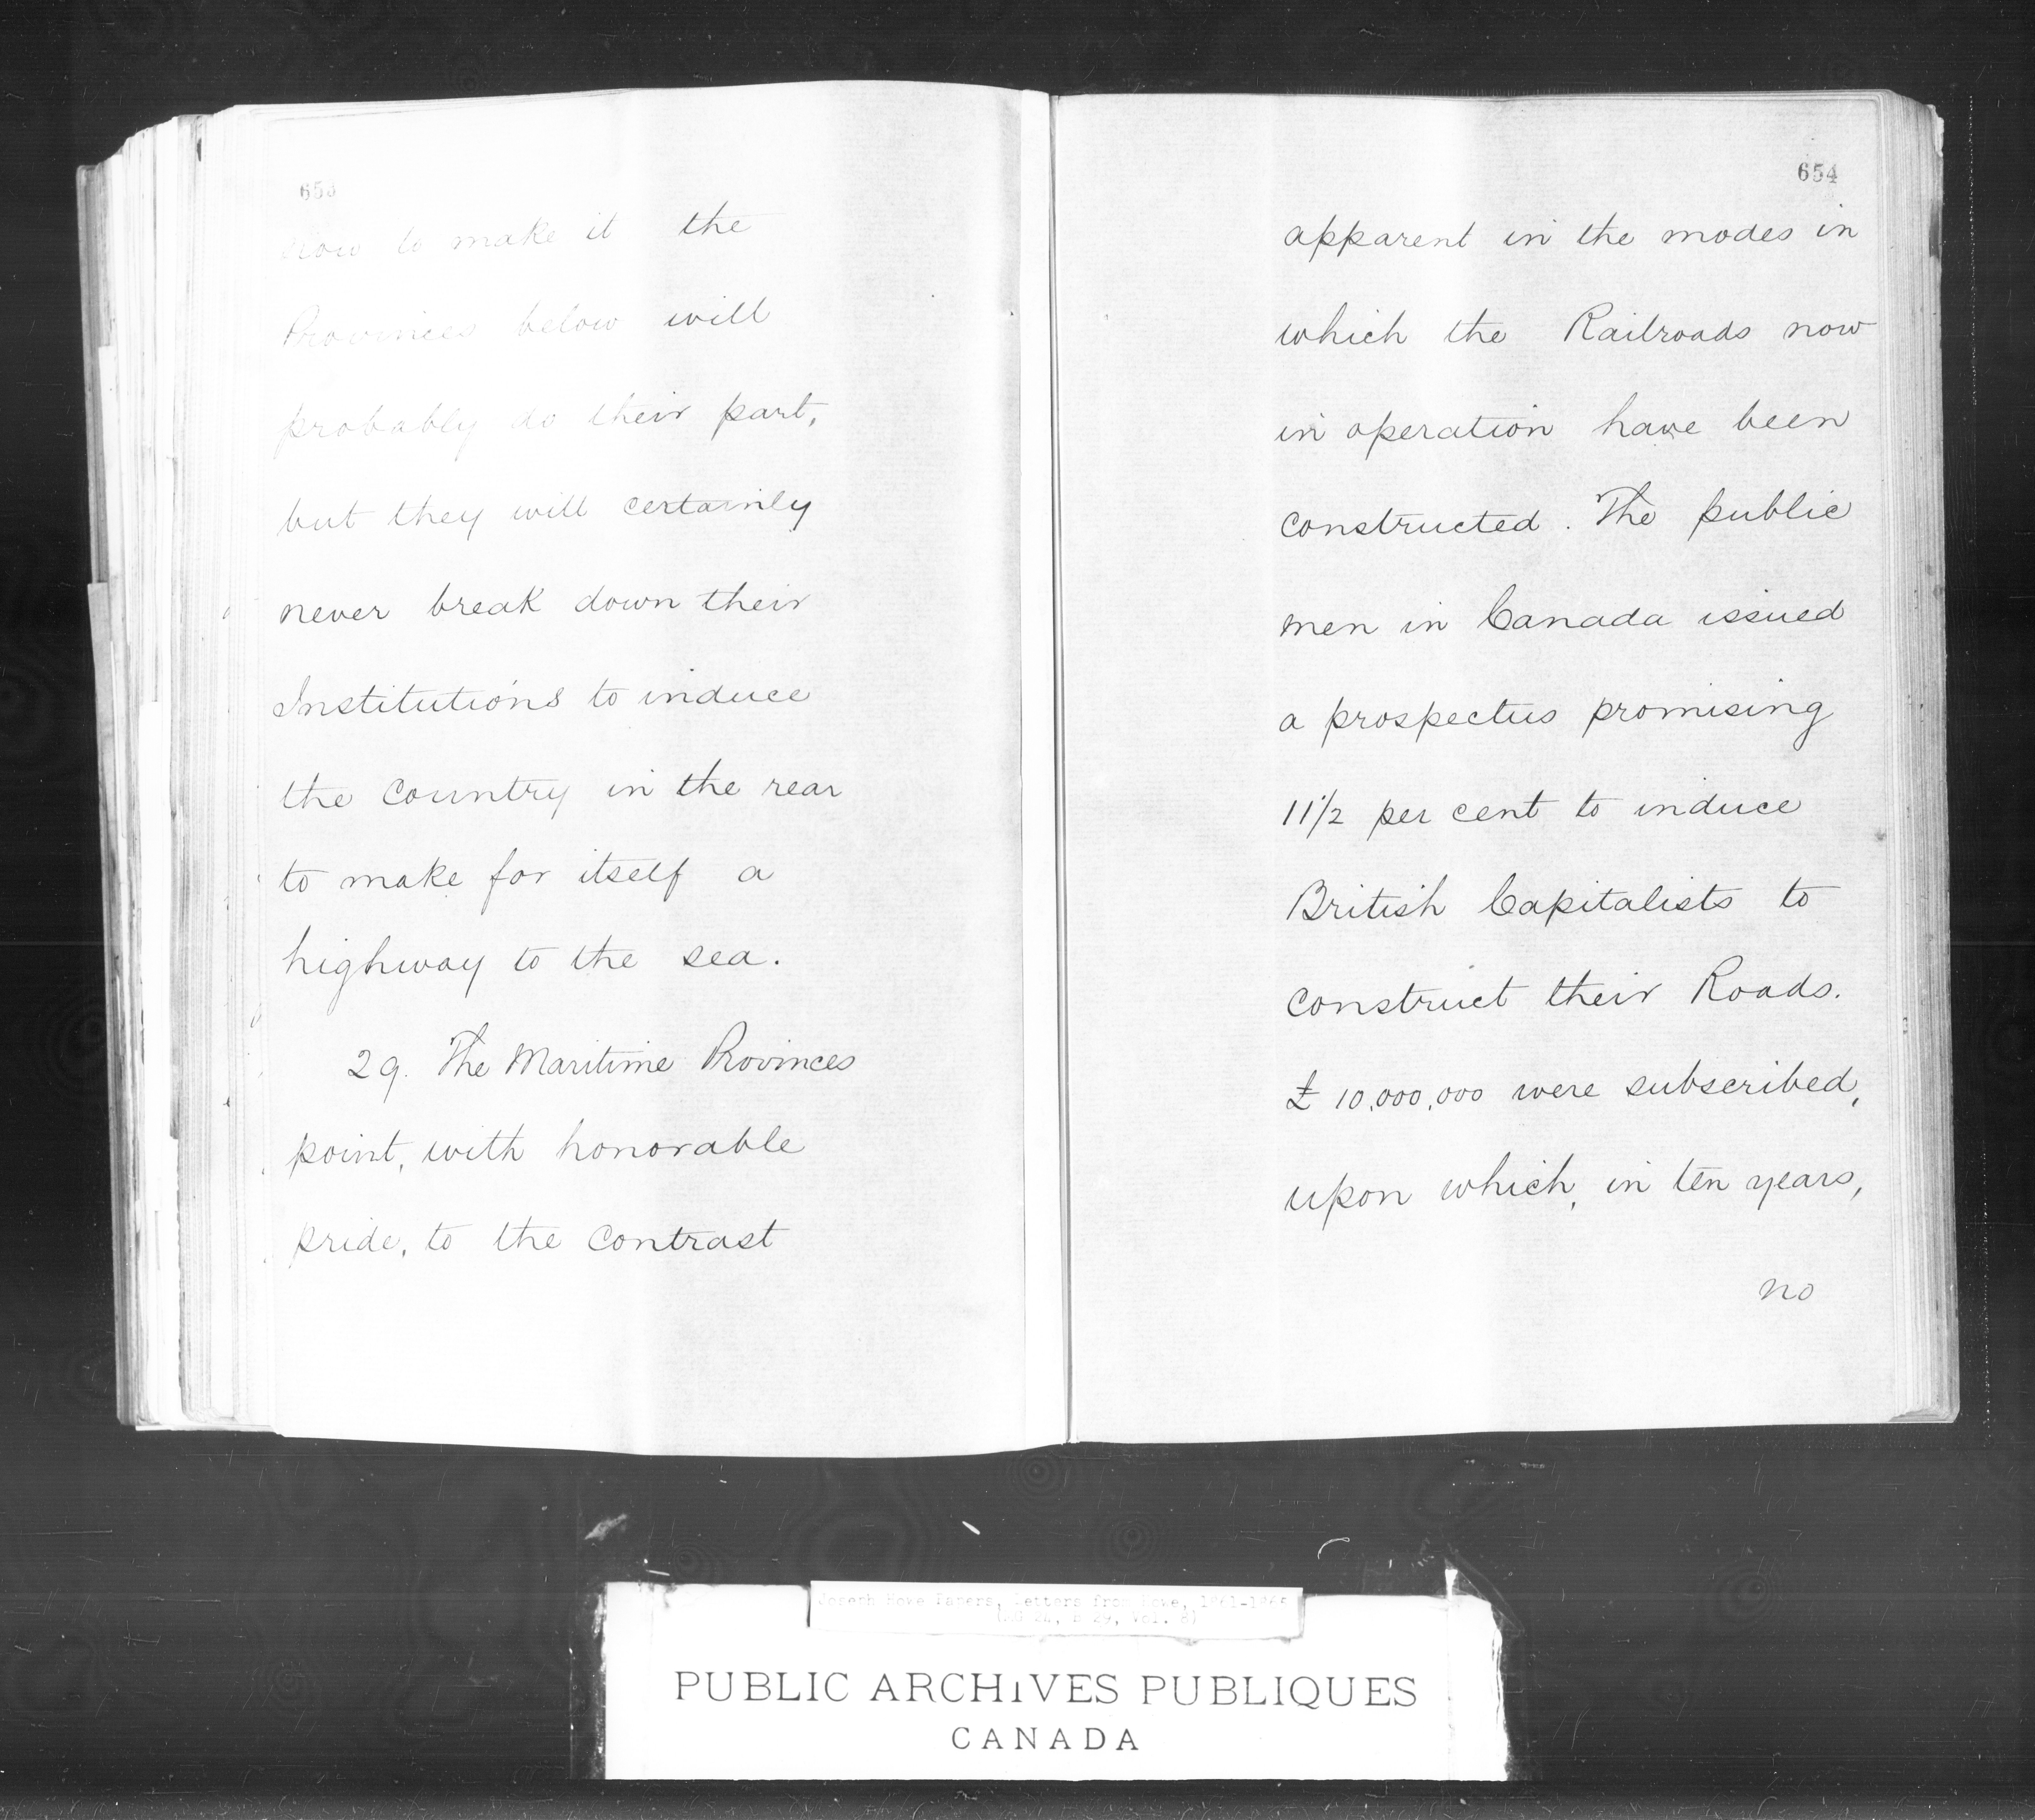 653
now to make it the
Provinces below will
probably do their part,
but they will certainly
never break down their
Institutions to induce
the country in the rear
to make for itself a
highway to the sea.
29. The Maritime Provinces
point, with honorable
pride, to the contrast
654
apparent in the modes in
which the Railroads now
in operation have been
constructed. The public
men in Canada issued
a prospectus promising
11 1/2 per cent to induce
British Capitalists to
construct their Roads.
£ 10,000,000 were subscribed,
upon which, in ten years,
no
Joseph Howe Papers, Letters from Howe, 1861-1865
(MG 24, B 29, Vol. 8)
PUBLIC ARCHIVES PUBLIQUES
CANADA